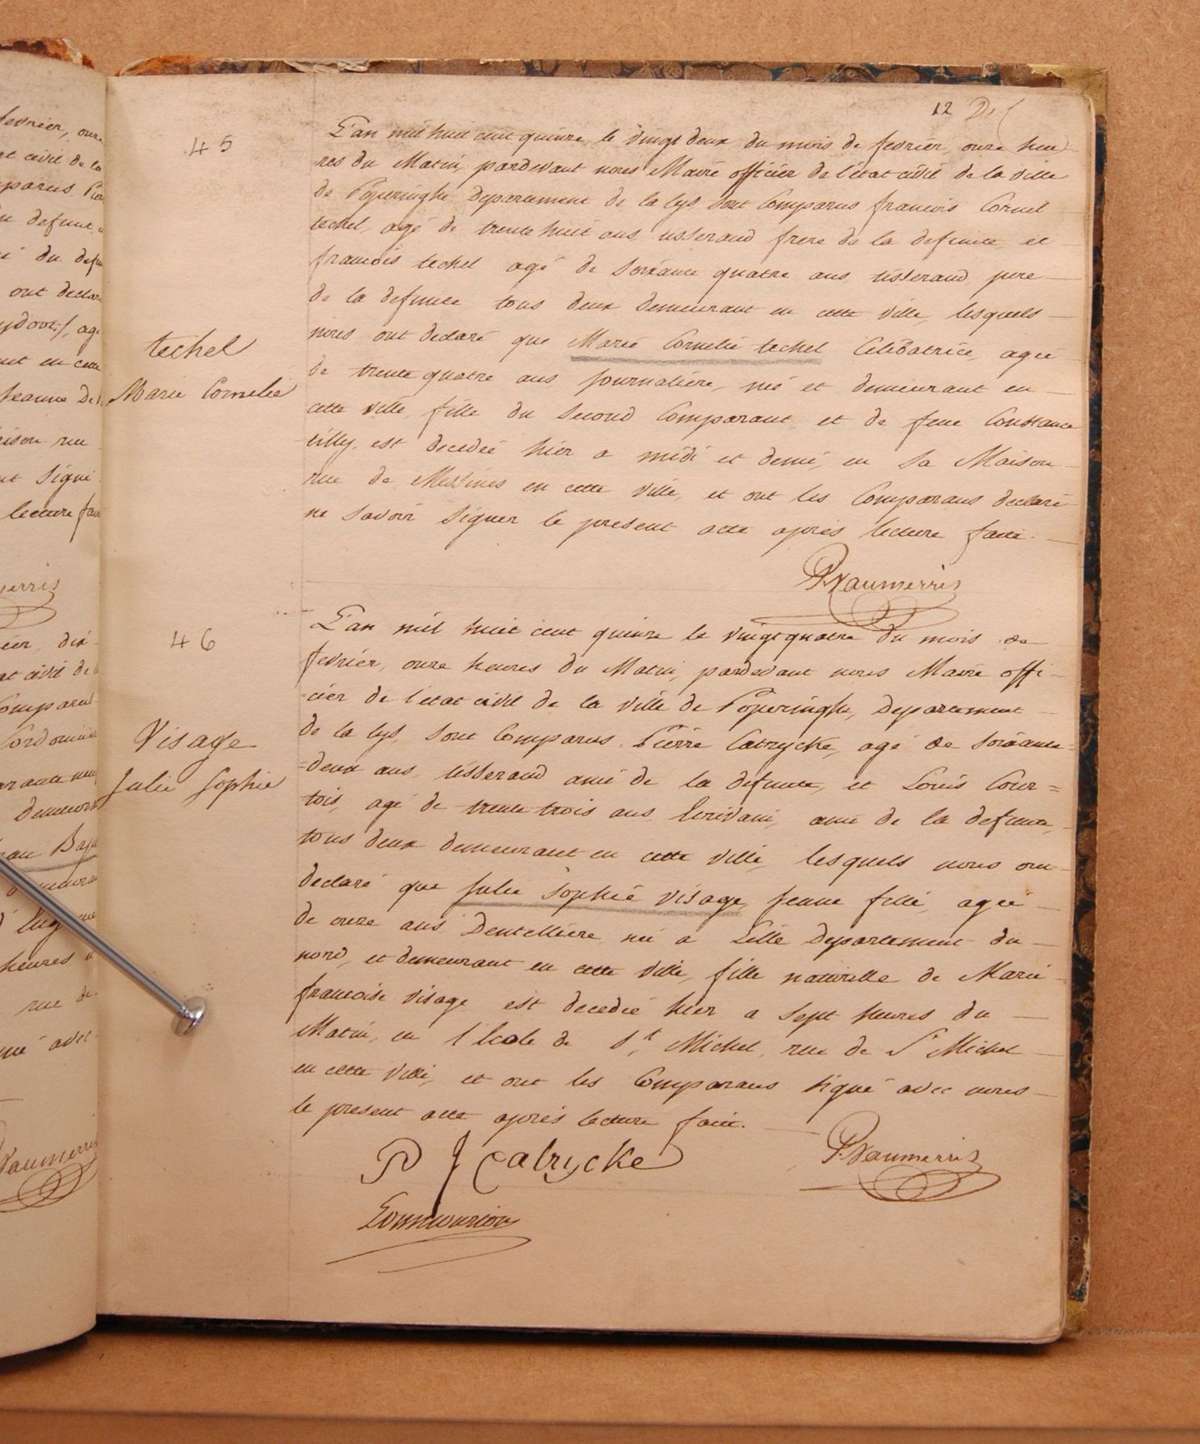 12 Def
45
L'an mil huit cent quinze le vingt deux du mois de fevrier, onze heu
res du Matin, pardevant nous Maire officier de l'etat civil de la ville
de Poperinghe departement de la lys sont Comparus francois Cornel
techel, agé de trente huit ans tisserand frere de la defunte et
francois techel agé de soixante quatre ans tisserand pere
de la defunte tous deux demeurant en cette ville, lesquels
nous ont declaré que Marie Cornelie techel Celibatrice, agée
de trente quatre ans journaliere, née et demeurant en
cette ville, fille du Second Comparant et de feue Constance
tilly, est decedée hier a midi et demie, en Sa Maison
rue de en cette ville, et ont les Comparans declaré
ne savoir Signer le present acte après lecture faite.
techel
Marie Cornelie
PVaumerris
46
L'an mil huit cent quinze le vingt quatre du mois de
fevrier, onze heures du Matin, pardevant nous Maire offi-
cier de l'etat civil de la ville de Poperinghe, departement
de la lys, sont Comparus Pierre Catrycke, agé de soixante
deux ans tisserand ami de la defunte, et Louis Cour=
tois, agé de trente trois ans Ecrivain, ami de la defunte,
tous deux demeurant en cette ville, lesquels nous ont
declaré que Julie Sophie Visage, jeune fille, agée
de onze ans Dentelliere, née a Lille departement du
nord, et demeurant en cette ville, fille naturelle de Marie
francoise Visage est decedée hier a sept heures du
Matin, en l'Ecole de St Michel, rue de St Michel
en cette ville, et ont les Comparans Signé avec nous
le present acte après lecture faite.
Visage
Julie Sophie
P J Catrycke
PVaumerris